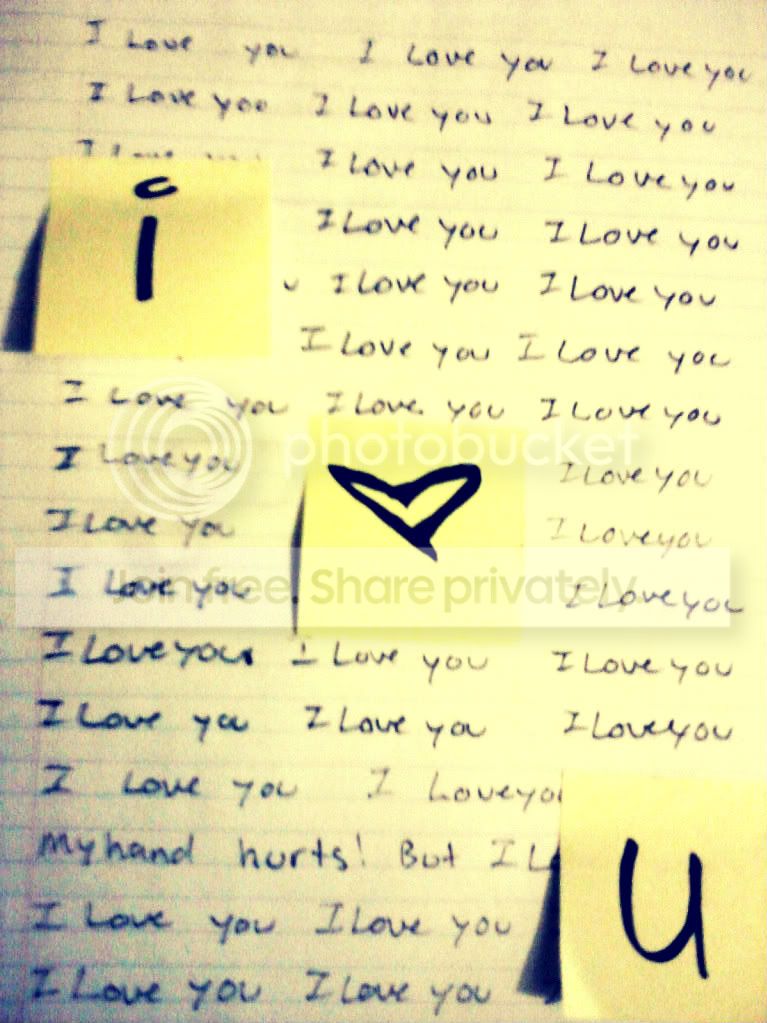 I Love you I Love you I Love you
I Love you I Love you I Love you
I Love you I Love you I Love you
i
I Love you I Love you
I Love you I Love you
I Love you I Love you
I Love you I Love you I Love you
photobucket
I Love you I Love you
♡
I Love you I Love you
Join free. Share privately.
I Love you I Love you
I Love you I Love you I Love you
I Love you I Love you I Love you
I Love you I Love you
My hand hurts! But I
u
I Love you I Love you
I Love you I Love you